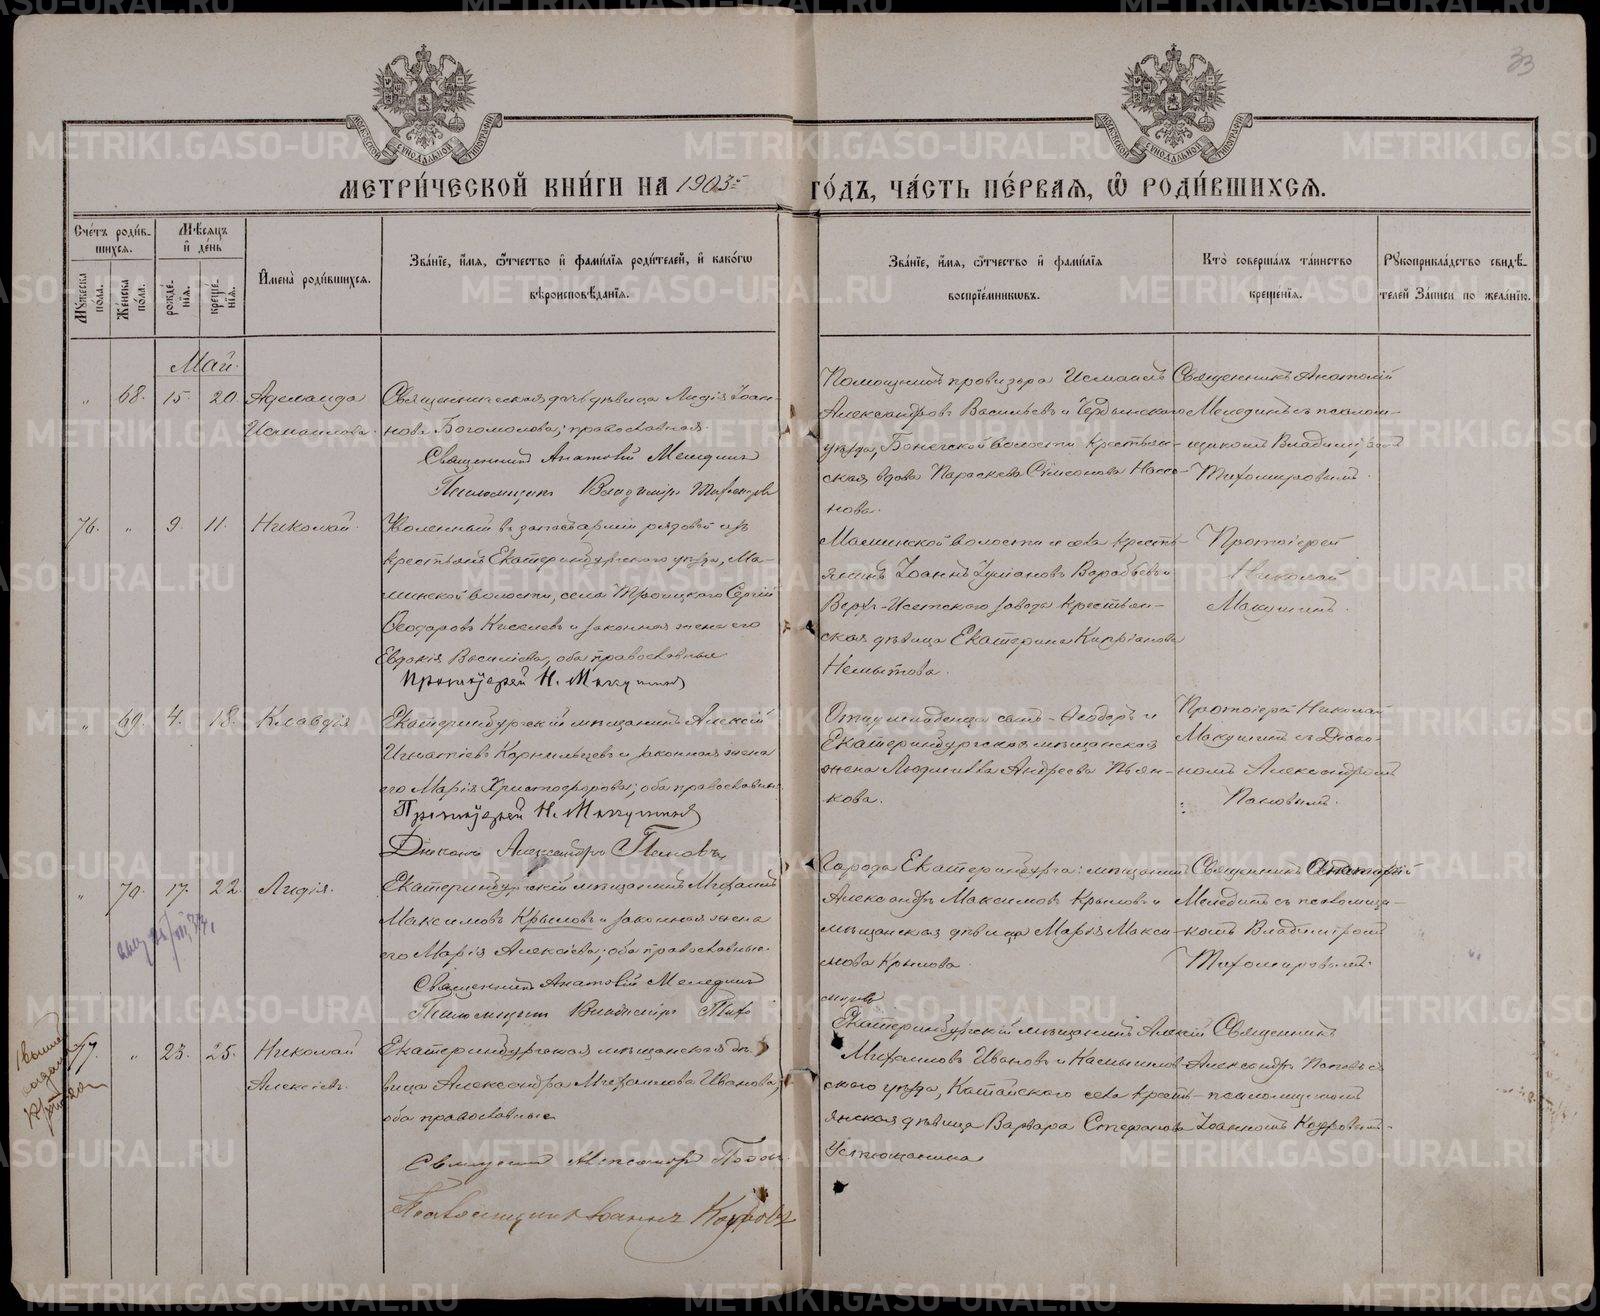 33
МЕТРИ́ЧЕСКОЙ КНИ́ГИ НА 1903й ГО́ДЪ, ЧА́СТЬ ПЕ́РВАЯ, Ѿ РОДИ́ВШИХСЯ.
Сче́тъ роди́вшихся.
Мѣ́сяцъ и де́нь
Имена̀ роди́вшихся.
Зва́нїе, и́мя, ѻ́тчество и фами́лїя роди́телей, и како́гѡ вѣроисповѣ́данїя.
Зва́нїе, и́мя, ѻ́тчество и фами́лїя воспрїе́мникѡвъ.
Кто̀ соверша́лъ та́инство креще́нїя.
Рукоприкла́дство свидѣ́телей за́писи по жела́нїю.
Му́жеска по́ла.
Же́нска по́ла.
рожде́нїя.
креще́нїя.
Май.
„ 68. 15 20 Аделаида
Исмаилова.
Священническая дочь дѣвица Лидія Іоан-
нова Богомолова, православная.
Священникъ Анатолій
Псаломщикъ Владиміръ
Помощникъ провизора Исмаилъ
Александровъ Васильевъ и Чердынского
уѣзда, волости крестьян-
ская вдова Параскева Сумеонова
нова.
Священникъ Анатолій
съ псалом-
щикомъ Владиміромъ
Тихомировымъ.
76. „ 9. 11. Николай.
Уволенный въ запасъ арміи рядовой изъ
крестьянъ Екатеринбургского уѣзда, Ма-
минской волости, села Троицкого Сергій
Ѳеодоровъ Киселевъ и законная жена его
Евдокія Василіева, оба православные
Протоіерей Н. Макушинъ
Маминской волости и села кресть-
янинъ Іоаннъ Воробьевъ и
Верхъ-Исетского завода крестьян-
ская дѣвица Екатерина Кипріанова
Немытова.
Протоіерей
Николай
Макушинъ.
„ 69. 4. 18. Клавдія
Екатеринбургскій мѣщанинъ Алексій
Игнатіевъ Корнильцевъ и законная жена
его Марія Христофорова, оба православные.
Протоіерей Н. Макушинъ
Діаконъ Александръ Поповъ
Отца младенца сынъ Ѳеодоръ и
Екатеринбургская мѣщанская
жена Людмилла Андреева Пьян-
кова.
Протоіерей Николай
Макушинъ съ Діако-
номъ Александромъ
Поповымъ.
„ 70. 17. 22. Лидія.
Екатеринбургскій мѣщанинъ Михаилъ
Максимовъ Крыловъ и законная жена
его Марія Алексіева, оба православные.
Священникъ Анатолій
Псаломщикъ Владиміръ
Города Екатеринбурга: мѣщанинъ
Александръ Максимовъ Крыловъ и
мѣщанская дѣвица Марія Макси-
мова Крылова.
Священникъ Анатолій
съ псаломщи-
комъ Владиміромъ
Тихомировымъ.
77. „ 23. 25. Николай
Алексіевъ.
Екатеринбургская мѣщанская дѣ-
вица Александра Михаилова Иванова,
оба православные
Священникъ Александръ Поповъ.
Псаломщикъ Іоаннъ
Екатеринбургскій мѣщанинъ Алексій
Михаиловъ Ивановъ и Камышлов-
ского уѣзда, Катайского села кресть-
янская дѣвица Варвара Стефанова
Устюжанина
Священникъ
Александръ Поповъ съ
псаломщикомъ
Іоанномъ
METRIKI.GASO-URAL.RU